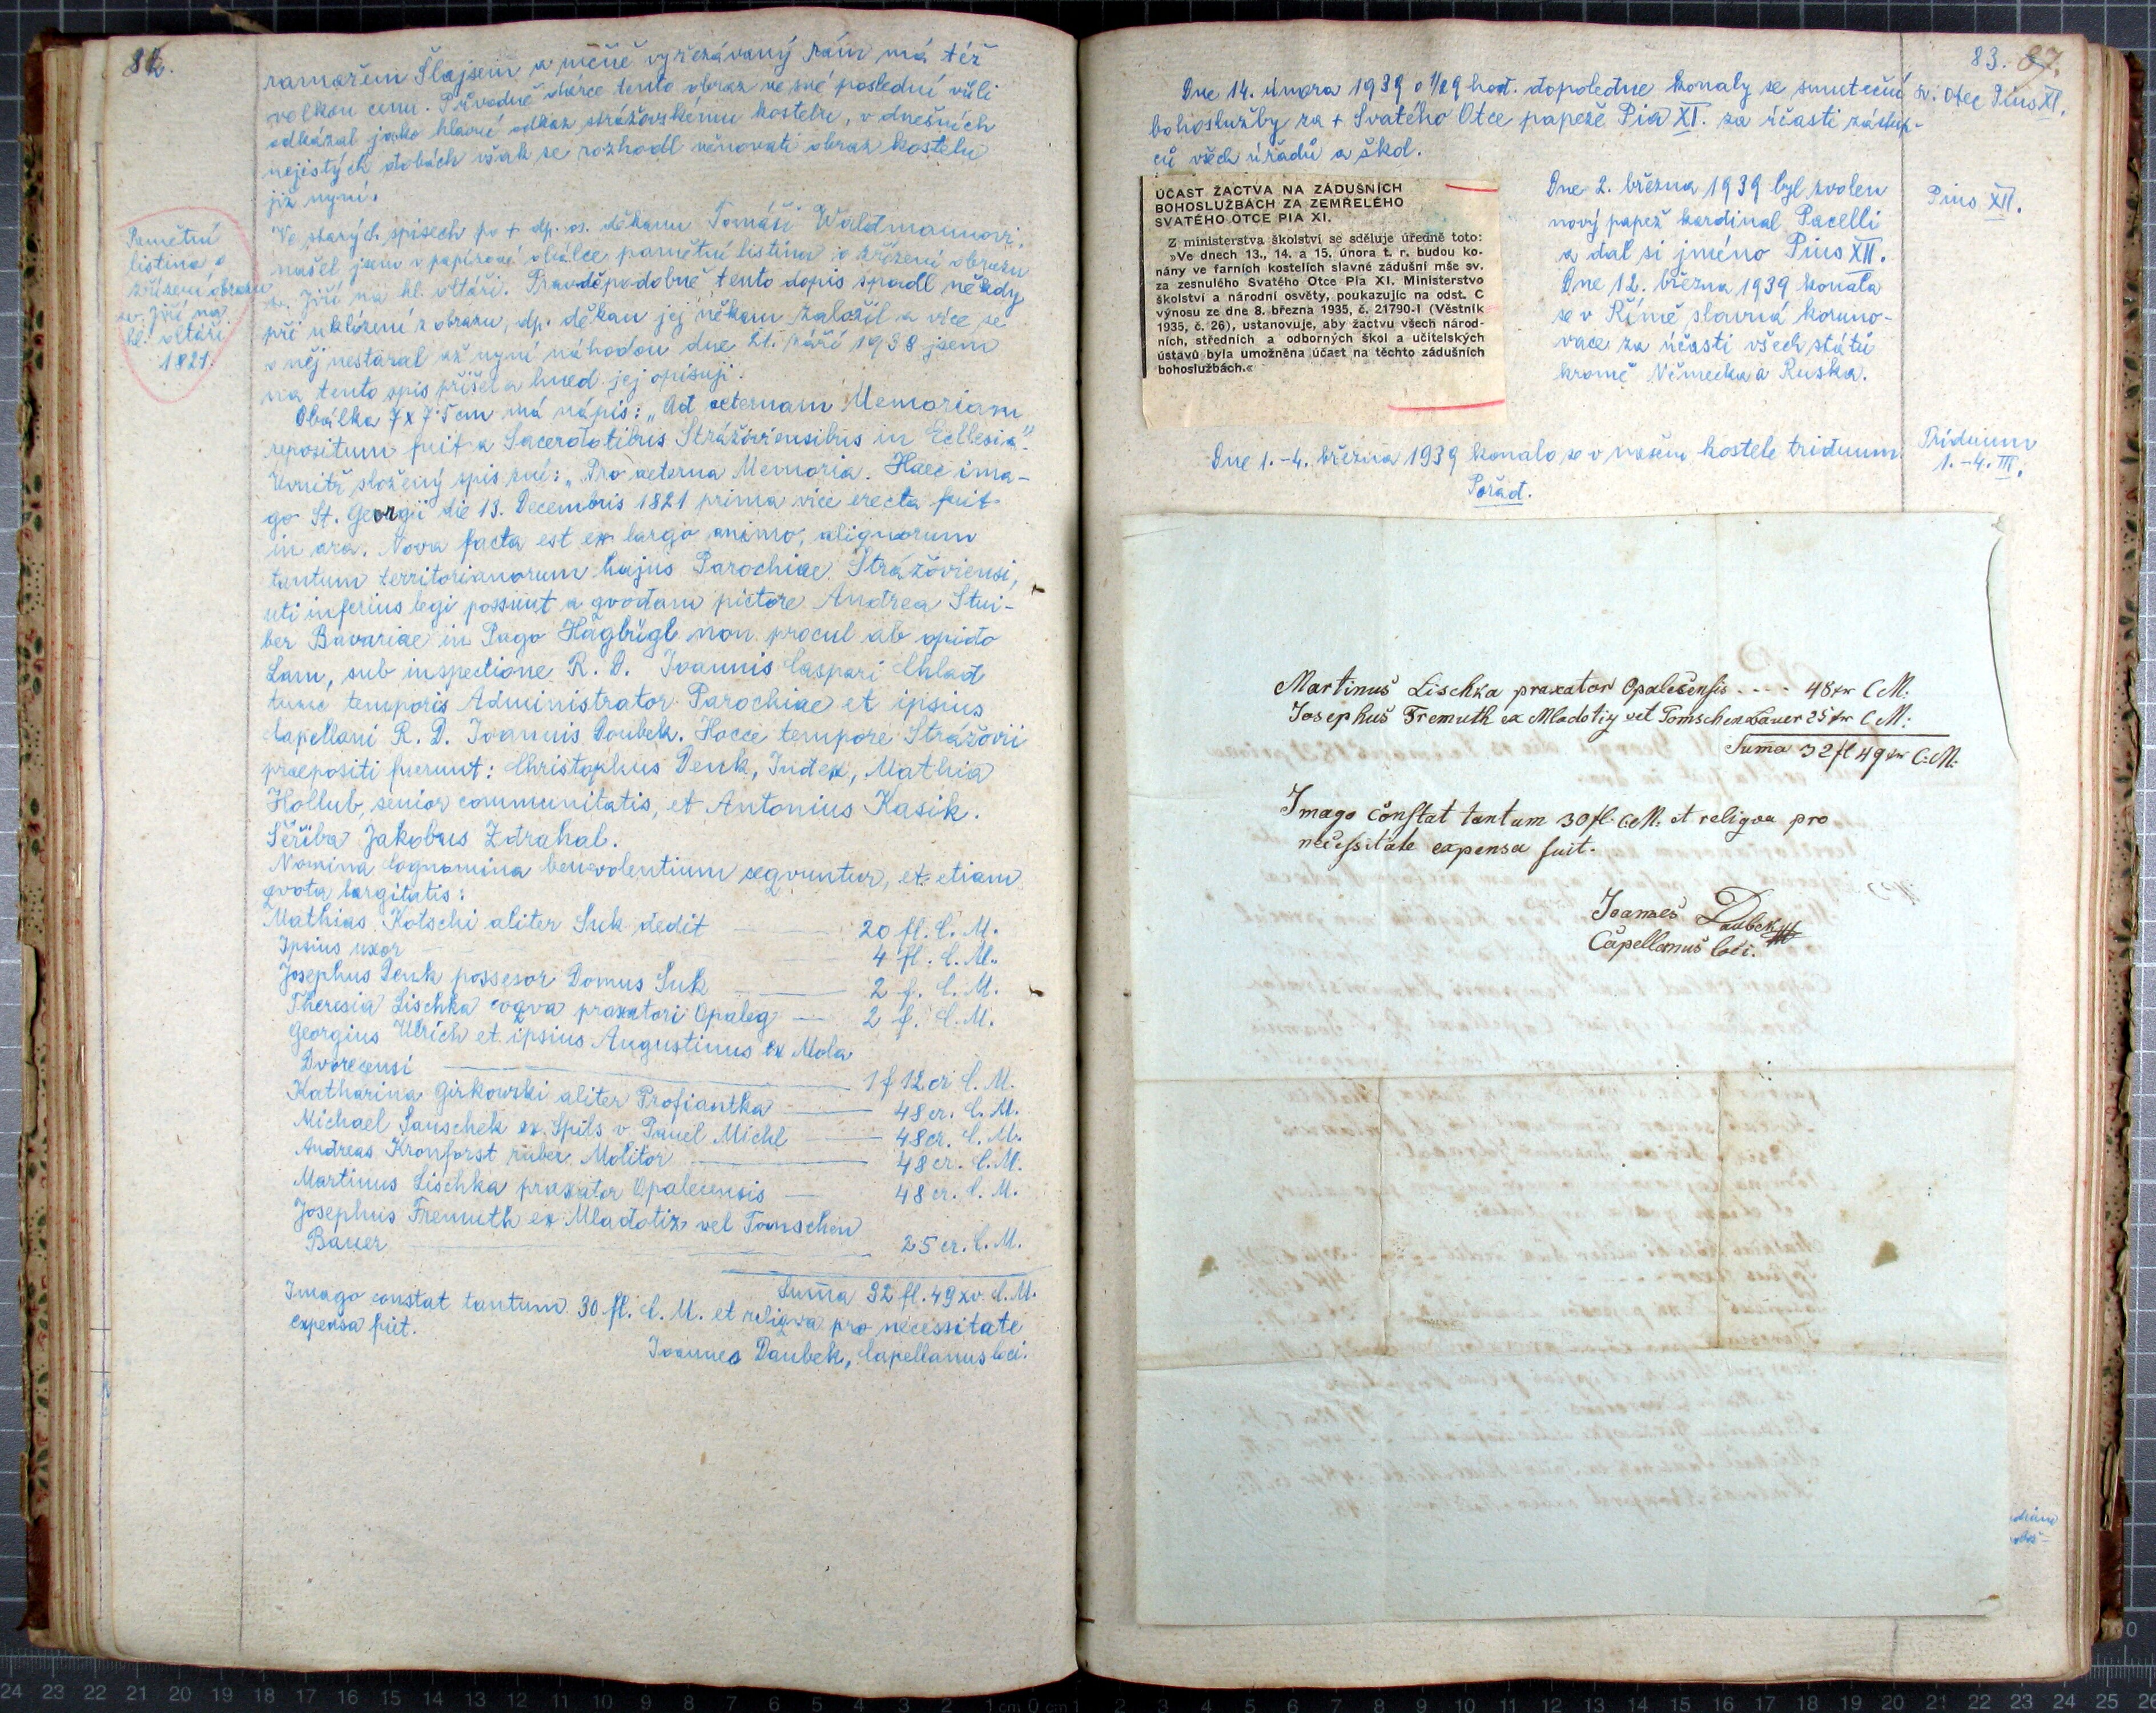 82.
ramařem Šlajsem a věčně vyřezávaný rám má též
velkou cenu. Původně dárce tento obraz ve své poslední vůli
odkázal jako hlavní odkaz strážovskému kostelu, v dnešních
nejistých dobách však se rozhodl věnovati obraz kostelu
již nyní.
Pamětní
listina o
zřízení obrazu
sv. Jiří na
hl. oltáři
1821.
Ve starých spisech po + dp. os. děkanu Tomáši Waldmannovi,
našel jsem v papírové obálce pamětní listinu o zřízení obrazu
sv. Jiří na hl. oltáři. Pravděpodobně tento dopis spadl někdy
při uklízení z obrazu, dp. děkan jej někam založil a více se
o něj nestaral až nyní náhodou dne 21. září 1938 jsem
na tento spis přišel a hned jej opisuji.
Obálka 7x7·5cm má nápis: „Ad aeternam Memoriam
repositum fuit a Sacerdotibus Strážoviensibus in Ecclesia"
Uvnitř složený spis zní: „Pro aeterna Memoria. Haec ima-
go St. Georgii die 13. Decembris 1821 prima vice erecta fuit
in ara. Nova facta est ex largo animo, aliquorum
tantum territorianorum hujus Parochiae Strážoviensi,
uti inferius legi possunt a qvodam pictore Andrea Stui-
ber Bavariae in Pago Hägbügl non procul ab opido
Lam, sub inspectione R. D. Joannis Caspari Chlad
tunc temporis Administrator Parochiae et ipsius
Capellani R. D. Joannis Doubek. Hocce tempore Strážovii
praepositi fuerunt: Christophus Denk, Judex, Mathia
Hollub, senior communitatis, et Antonius Kasik.
Scriba Jakobus Zdrahal.
Nomina cognomina benevolentium seqvuntur, et etiam
qvota largitatis:
Mathias Kotschi aliter Suk dedit — 20 fl. C. M.
Ipsius uxor — 4 fl. C. M.
Josephus Denk possesor Domus Suk — 2 f. C. M.
Theresia Lischka coqva praxatori Opaleg — 2 f. C. M.
Georgius Ulrich et ipsius Augustinus ex Mola
Dvorecensi — 1 f 12 cr C. M.
Katharina Girkowski aliter Profiantka — 48 cr. C. M.
Michael Janschek ex Spils v. Pauel Michl — 48 cr. C. M.
Andreas Kronforst ruber Molitor — 48 cr. C. M.
Martinus Lischka praxator Opalecensis — 48 cr. C. M.
Josephus Fremuth ex Mladotiz vel Tomschen
Bauer — 25 cr. C. M.
Summa 32 fl. 49 xv. C. M.
Imago constat tantum 30 fl. C. M. et reliqva pro necessitate
expensa fuit.
Joannes Daubek, Capellanus loci.
83. 87.
Dne 14. února 1939 o 1/29 hod. dopoledne konaly se smuteční
bohoslužby za + Svatého Otce papeže Pia XI. za účasti zástup-
ců všech úřadů a škol.
Sv. Otec Pius XI.
ÚČAST ŽACTVA NA ZÁDUŠNÍCH
BOHOSLUŽBÁCH ZA ZEMŘELÉHO
SVATÉHO OTCE PIA XI.
Z ministerstva školství se sděluje úředně toto:
»Ve dnech 13., 14. a 15. února t. r. budou ko-
nány ve farních kostelích slavné zádušní mše sv.
za zesnulého Svatého Otce Pia XI. Ministerstvo
školství a národní osvěty, poukazujíc na odst. C
výnosu ze dne 8. března 1935, č. 21790-I (Věstník
1935, č. 26), ustanovuje, aby žactvu všech národ-
ních, středních a odborných škol a učitelských
ústavů byla umožněna účast na těchto zádušních
bohoslužbách.«
Dne 2. března 1939 byl zvolen
nový papež kardinal Pacelli
a dal si jméno Pius XII.
Dne 12. března 1939 konala
se v Římě slavná koruno-
vace za účasti všech států
kromě Německa a Ruska.
Pius XII.
Dne 1.-4. března 1939 konalo se v našem kostele triduum
Pořad.
Triduum
1.-4. III.
Martinus Lischka praxator Opalecensis . . . . 48 xr CM:
Josephus Fremuth ex Mladotiz vel Tomschen Bauer 25 xr CM:
Summa 32 fl 49 xr C:M.
Imago constat tantum 30 fl. C:M: et reliqva pro
necessitate expensa fuit.
Joannes Daubek
Capellanus loci.